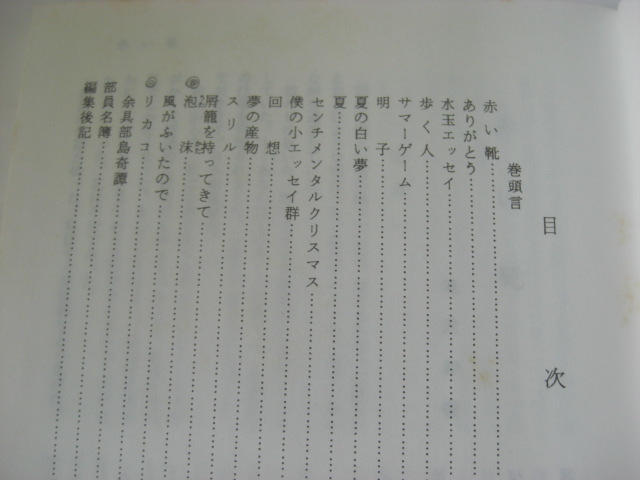 目次
巻頭言
赤い靴
ありがとう
水玉エッセイ
歩く人
サマーゲーム
明子
夏の白い夢
夏
センチメンタルクリスマス
僕の小エッセイ群
回想
夢の産物
スリル
屑籠を持ってきて
泡沫
風がふいたので
リカコ
余具部島奇譚
部員名簿
編集後記